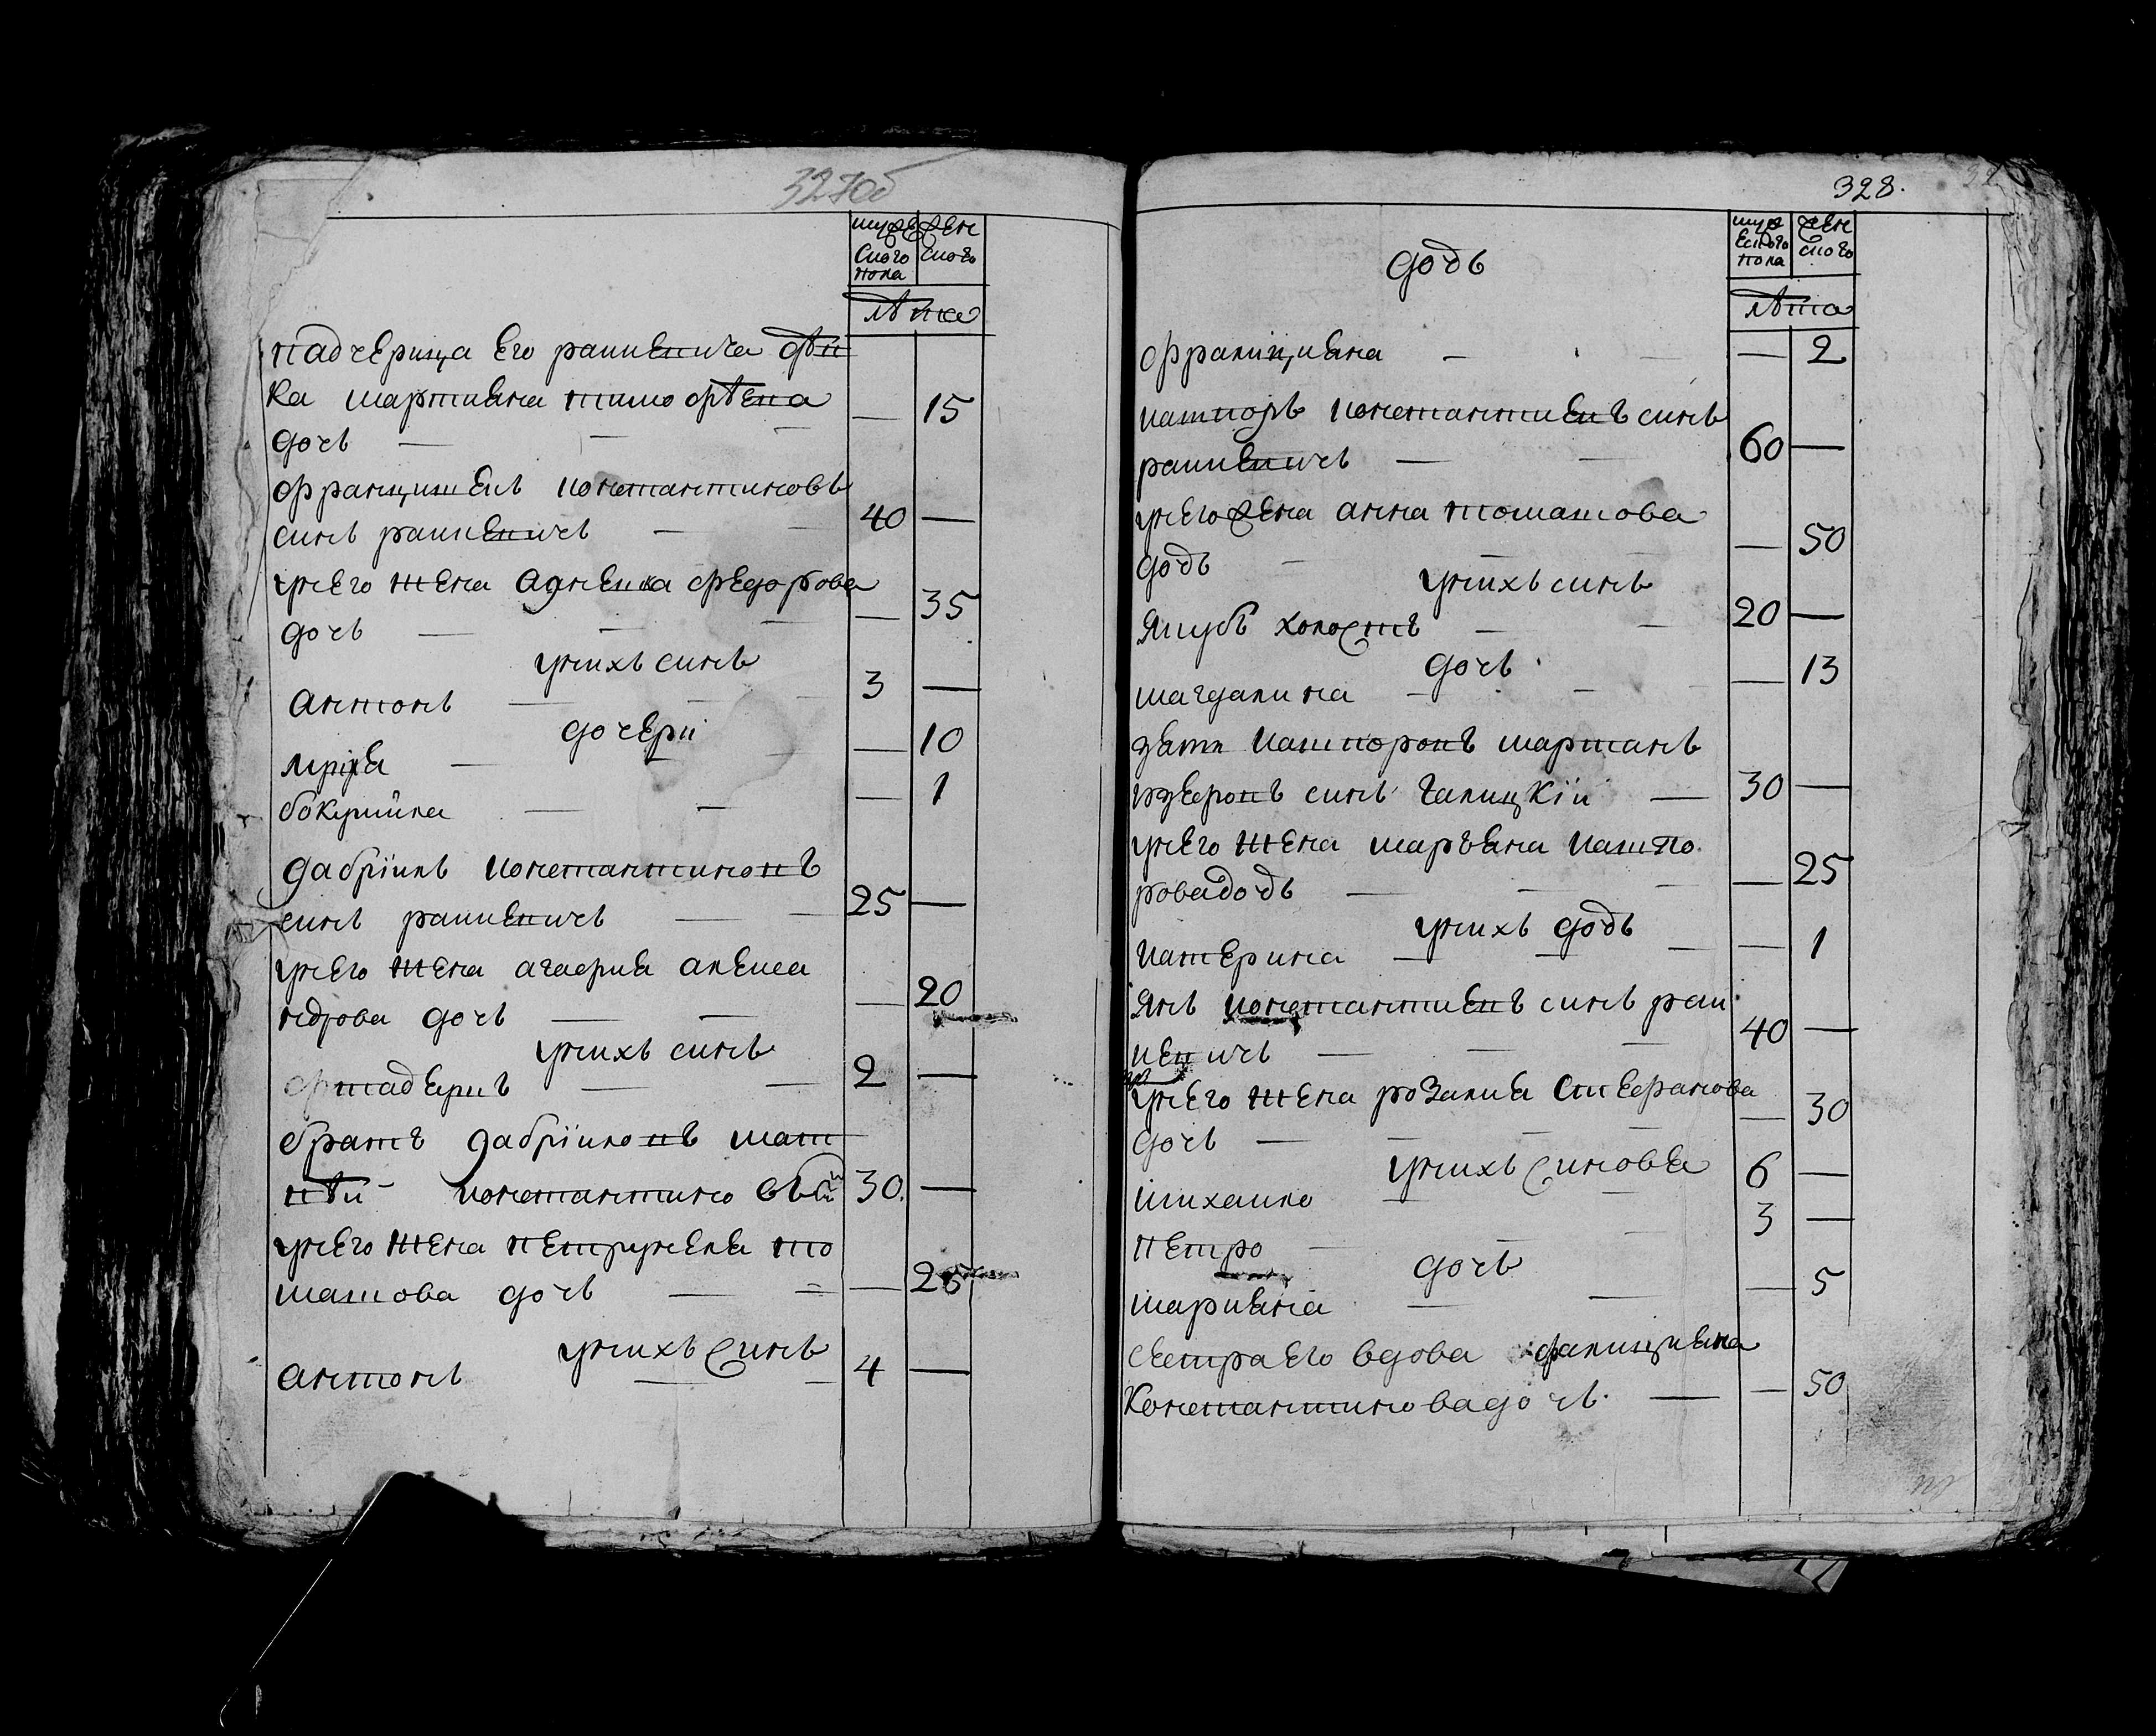 327об
мужеского пола
женского
лѣта
падчерица его рапкевича дѣв
ка мартияна тимофѣева
дочь — — — — 15
францишекъ констант­иновъ
синъ рапкевичъ — — 40 —
унего жена агнешка федорова
дочь — — — — 35
унихъ синъ
антонъ — — 3 —
дочери
— — — 10
— — — 1
габріинъ константиновъ
синъ рапкевичъ — — 25 —
унего жена агафия алекса
ндрова дочь — — — 20
унихъ синъ
— — 2 —
братъ матвѣй константино 30. —
унего жена петрунеля то
машова дочь — — — 25
унихъ синъ
антонъ — — 4 —
328.
мужеского пола
женского
дочь
лѣта
францишка — — — 2
кашпоръ константиевъ синъ
рапкевичъ — — 60 —
унего жена анна томашова
дочь — — — 50
унихъ синъ
якубъ холостъ — — 20 —
дочь
магдалина — — — 13
зять кашпоровъ мартинъ
синъ галицкій — 30 —
унего жена маръяна кашпо
рова дочь — — — — 25
унихъ дочь
катерина — — — — 1
янъ константиевъ синъ рап
кевичъ — — — 40 —
унего жена розалия стефанова
дочь — — — — — 30
унихъ синовья
михайло — — 6 —
петро — — — 3 —
дочь
марияна — — — 5
сестра его вдова
константинова дочь — — 50